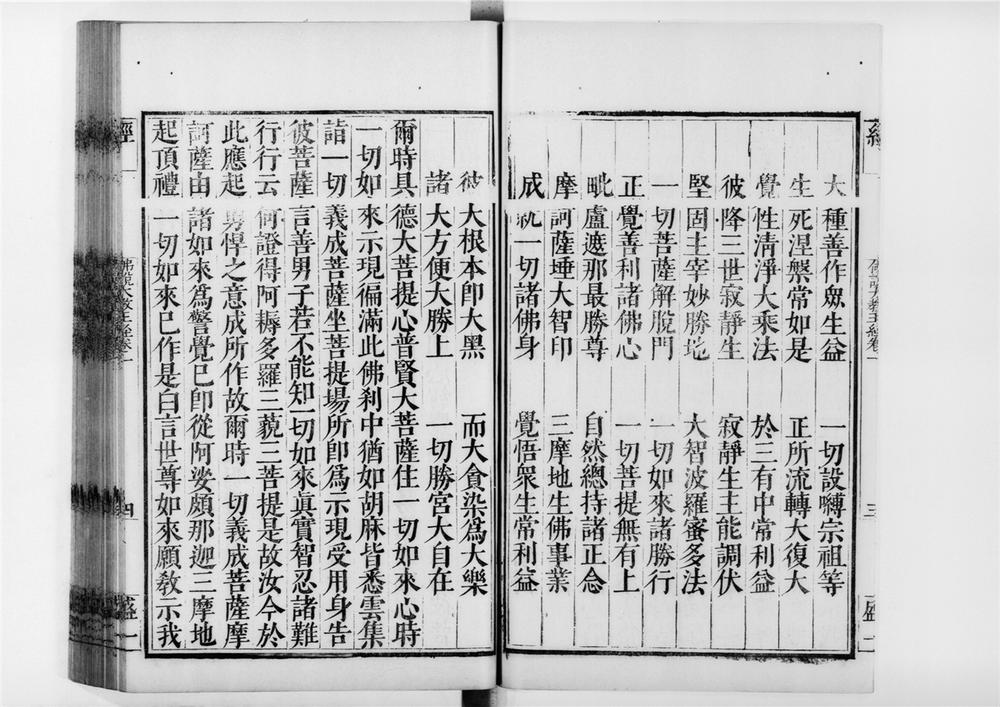 經 佛說大教王經卷一 三 盛一
大種善作衆生益 一切設嚩宗祖等
生死涅槃常如是 正所流轉大復大
覺性清淨大乘法 於三有中常利益
彼降三世寂靜生 寂靜生主能調伏
堅固主宰妙勝地 大智波羅蜜多法
一切菩薩解脫門 一切如來諸勝行
正覺善利諸佛心 一切菩提無有上
毗盧遮那最勝尊 自然總持諸正念
摩訶薩埵大智印 三摩地生佛事業
成就一切諸佛身 覺悟衆生常利益
彼大根本卽大黑 而大貪染爲大樂
諸大方便大勝上 一切勝宮大自在
爾時具德大菩提心普賢大菩薩住一切如來心時
一切如來示現徧滿此佛刹中猶如胡麻皆悉雲集
詣一切義成菩薩坐菩提場所卽爲示現受用身告
彼菩薩言善男子若不能知一切如來眞實智忍諸難
行行云何證得阿耨多羅三藐三菩提是故汝今於
此應起勇悍之意成所作故爾時一切義成菩薩摩
訶薩由諸如來爲警覺已卽從阿娑頗那迦三摩地
起頂禮一切如來已作是白言世尊如來願敎示我
經 佛說大教王經卷一 四 盛一